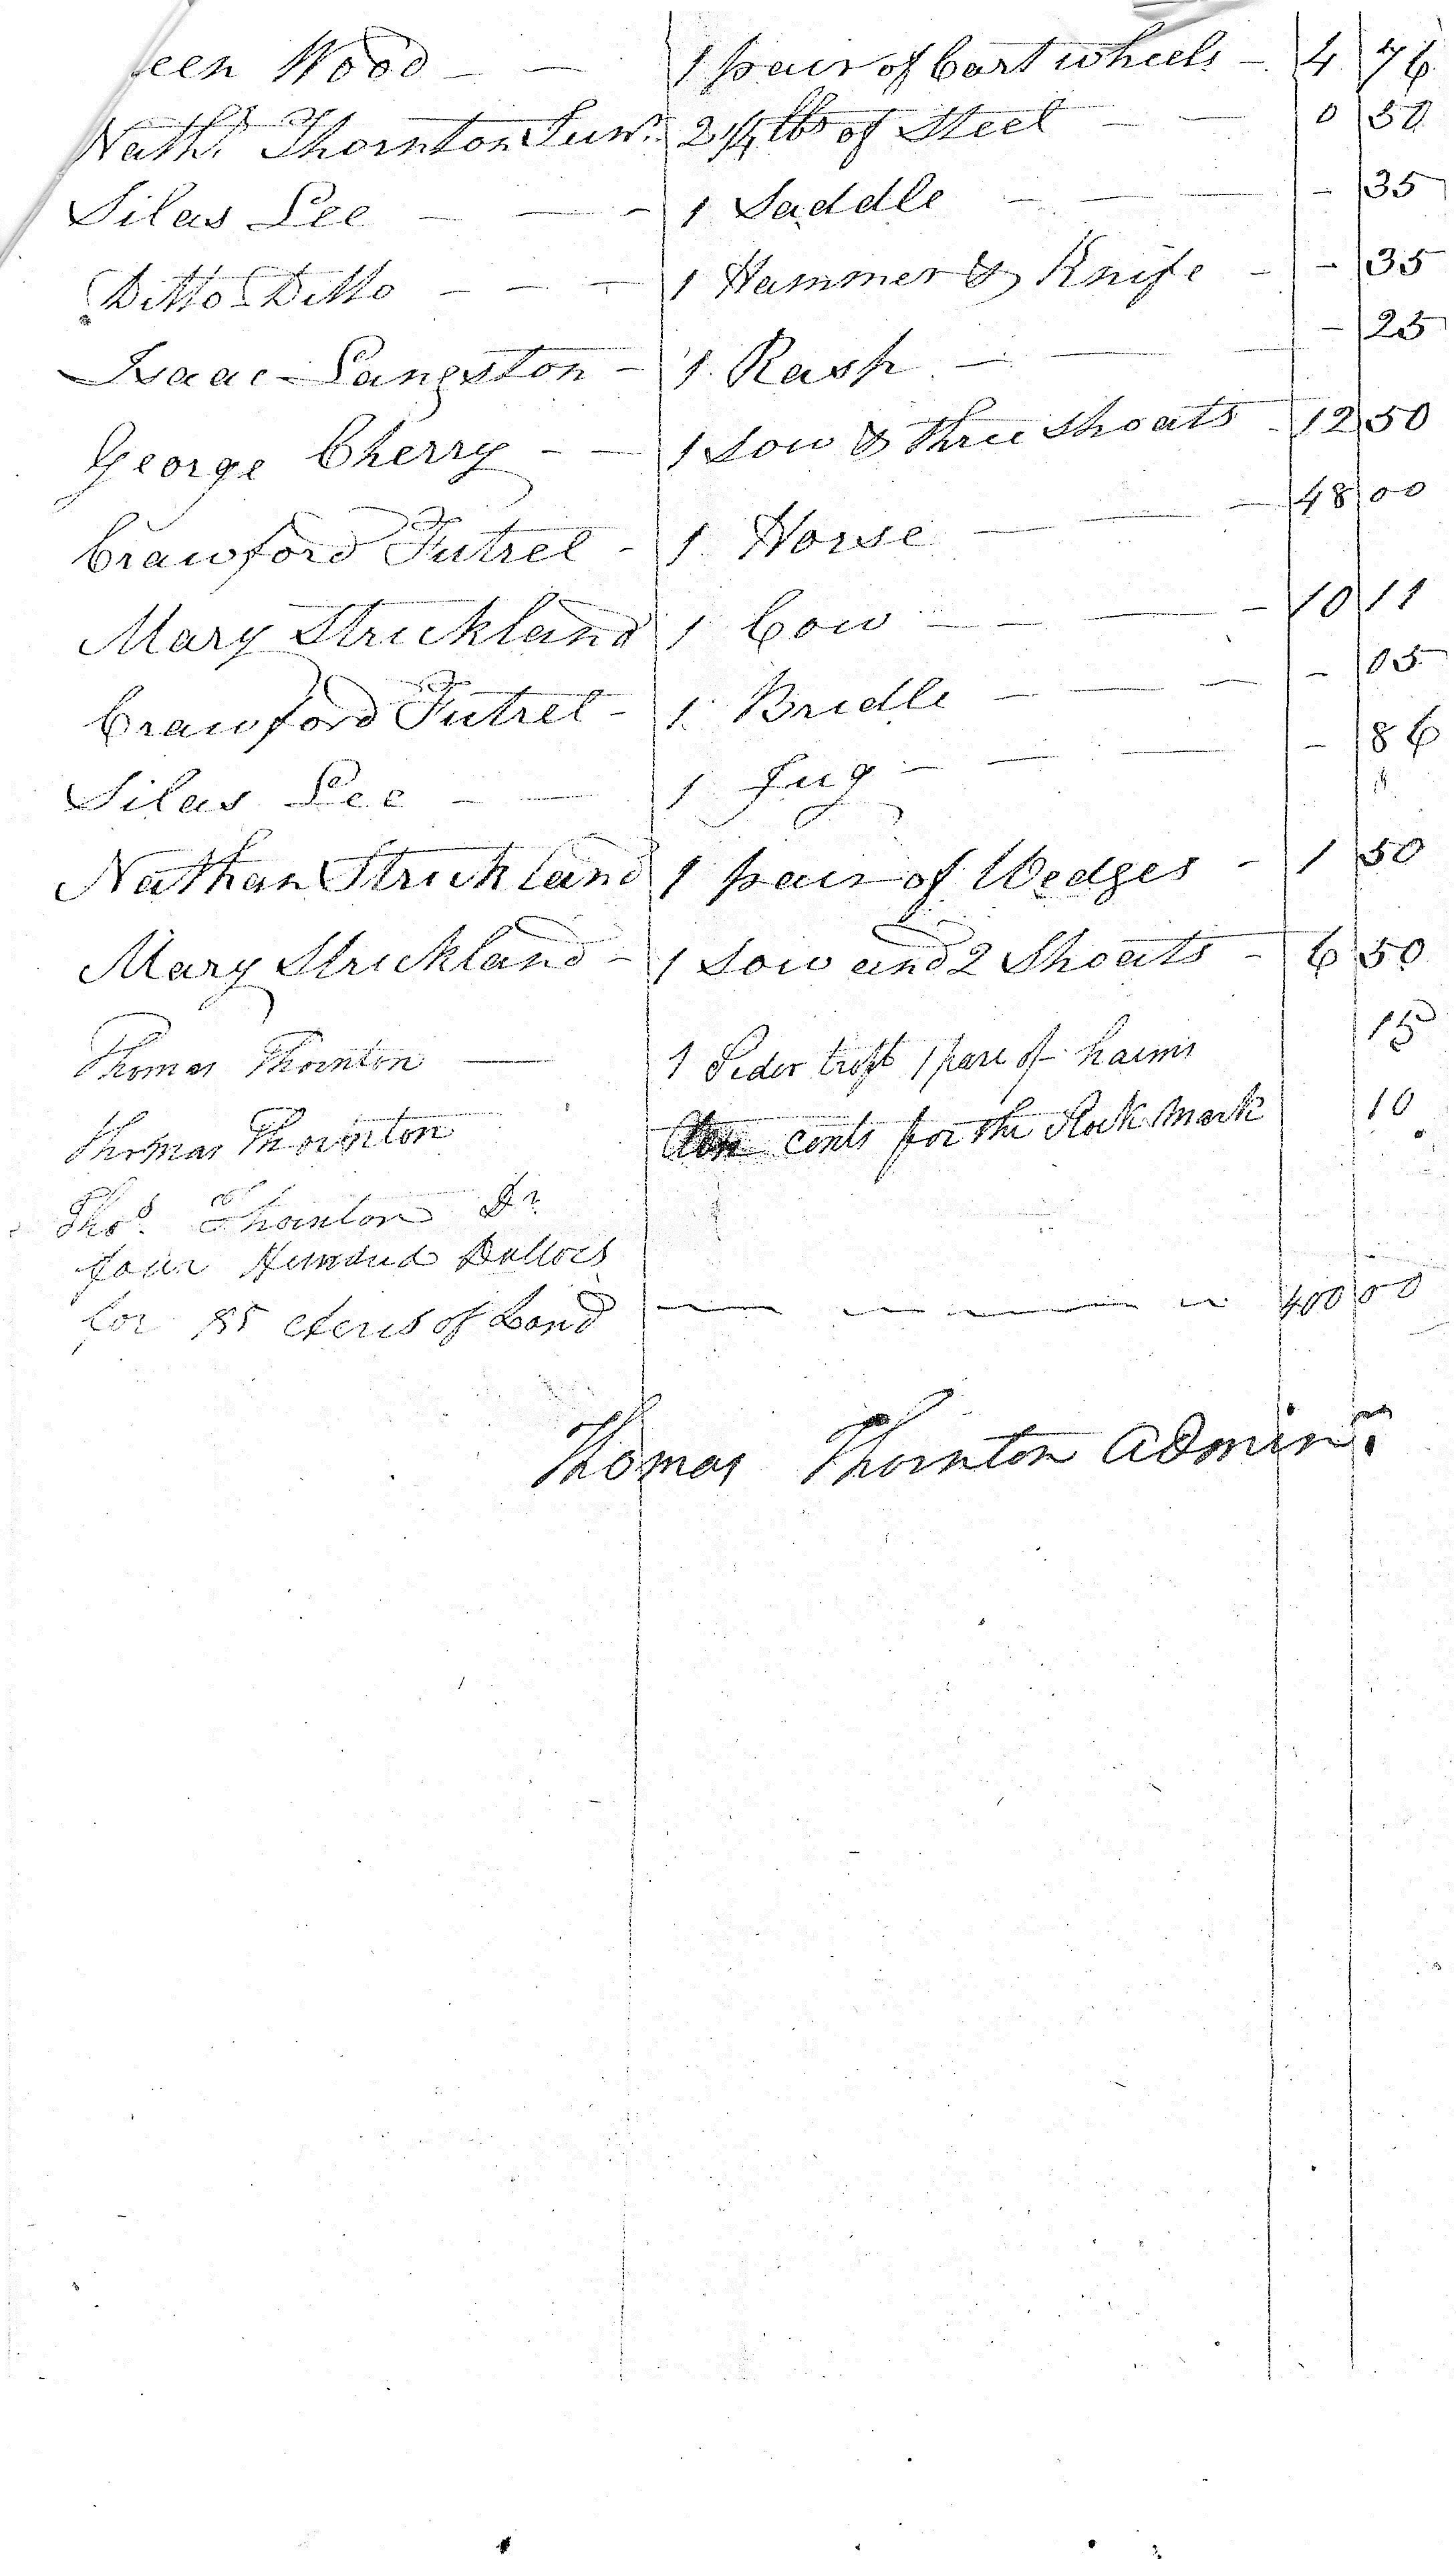 een Wood - - 1 pair of Cart wheels - 4 76
Nathl Thornton Junr. 2 1/4 lbs of Steel - - 0 50
Silas Lee - - - 1 Saddle - - - - 35
Ditto Ditto - - - 1 Hammer & Knife - - 35
Isaac Langston - 1 Rasp - - - - 25
George Cherry - - 1 Sow & three Shoats - 12 50
Crawford Futrel - 1 Horse - - - 48 00
Mary Strickland 1 Cow - - - - 10 11
Crawford Futrel - 1 Bridle - - - - 05
Silas Lee - - 1 Jug - - - - 86
Nathan Strickland 1 pair of Wedges - 1 50
Mary Strickland - 1 Sow and 2 Shoats - 6 50
Thomas Thornton - 1 Seder troft 1 pare of haims 15
Thomas Thornton cents for the Stock Mark 10
Thos. Thornton Dr
four Hundred Dollars
for 85 Acres of Land - - - - - 400 00
Thomas Thornton Adminr.